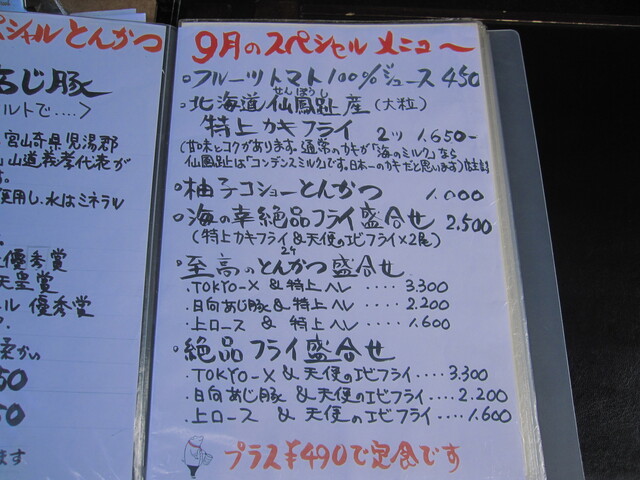 ペシャル とんかつ
あじ豚
ルトで....〉
宮崎県児湯郡
山道義孝代表が
す。
使用し、水はミネラル
優秀賞
天皇賞
ル 優秀賞
50
50
ます
9月のスペシャル メニュ〜
・フルーツトマト100%ジュース 450
・北海道仙鳳趾産(大粒)
せんぽうし
特上カキフライ 2ツ 1.650-
(甘味とコクがあります。通常のカキが「海のミルク」なら
仙鳳趾は「コンデンスミルク」です。日本一のカキだと思います)店主
・柚子コショーとんかつ 1.000
・海の幸絶品フライ盛合せ 2.500
(特上カキフライ&天使のエビフライ×2尾)
2ケ
・至高のとんかつ盛合せ
・TOKYO-X & 特上ヘレ ‥‥ 3.300
・日向あじ豚 & 特上ヘレ ‥‥ 2.200
・上ロース & 特上ヘレ ‥‥ 1.600
・絶品フライ盛合せ
・TOKYO-X & 天使のエビフライ‥‥ 3.300
・日向あじ豚 & 天使のエビフライ‥‥ 2.200
・上ロース & 天使のエビフライ‥‥ 1.600
プラス¥490で定食です